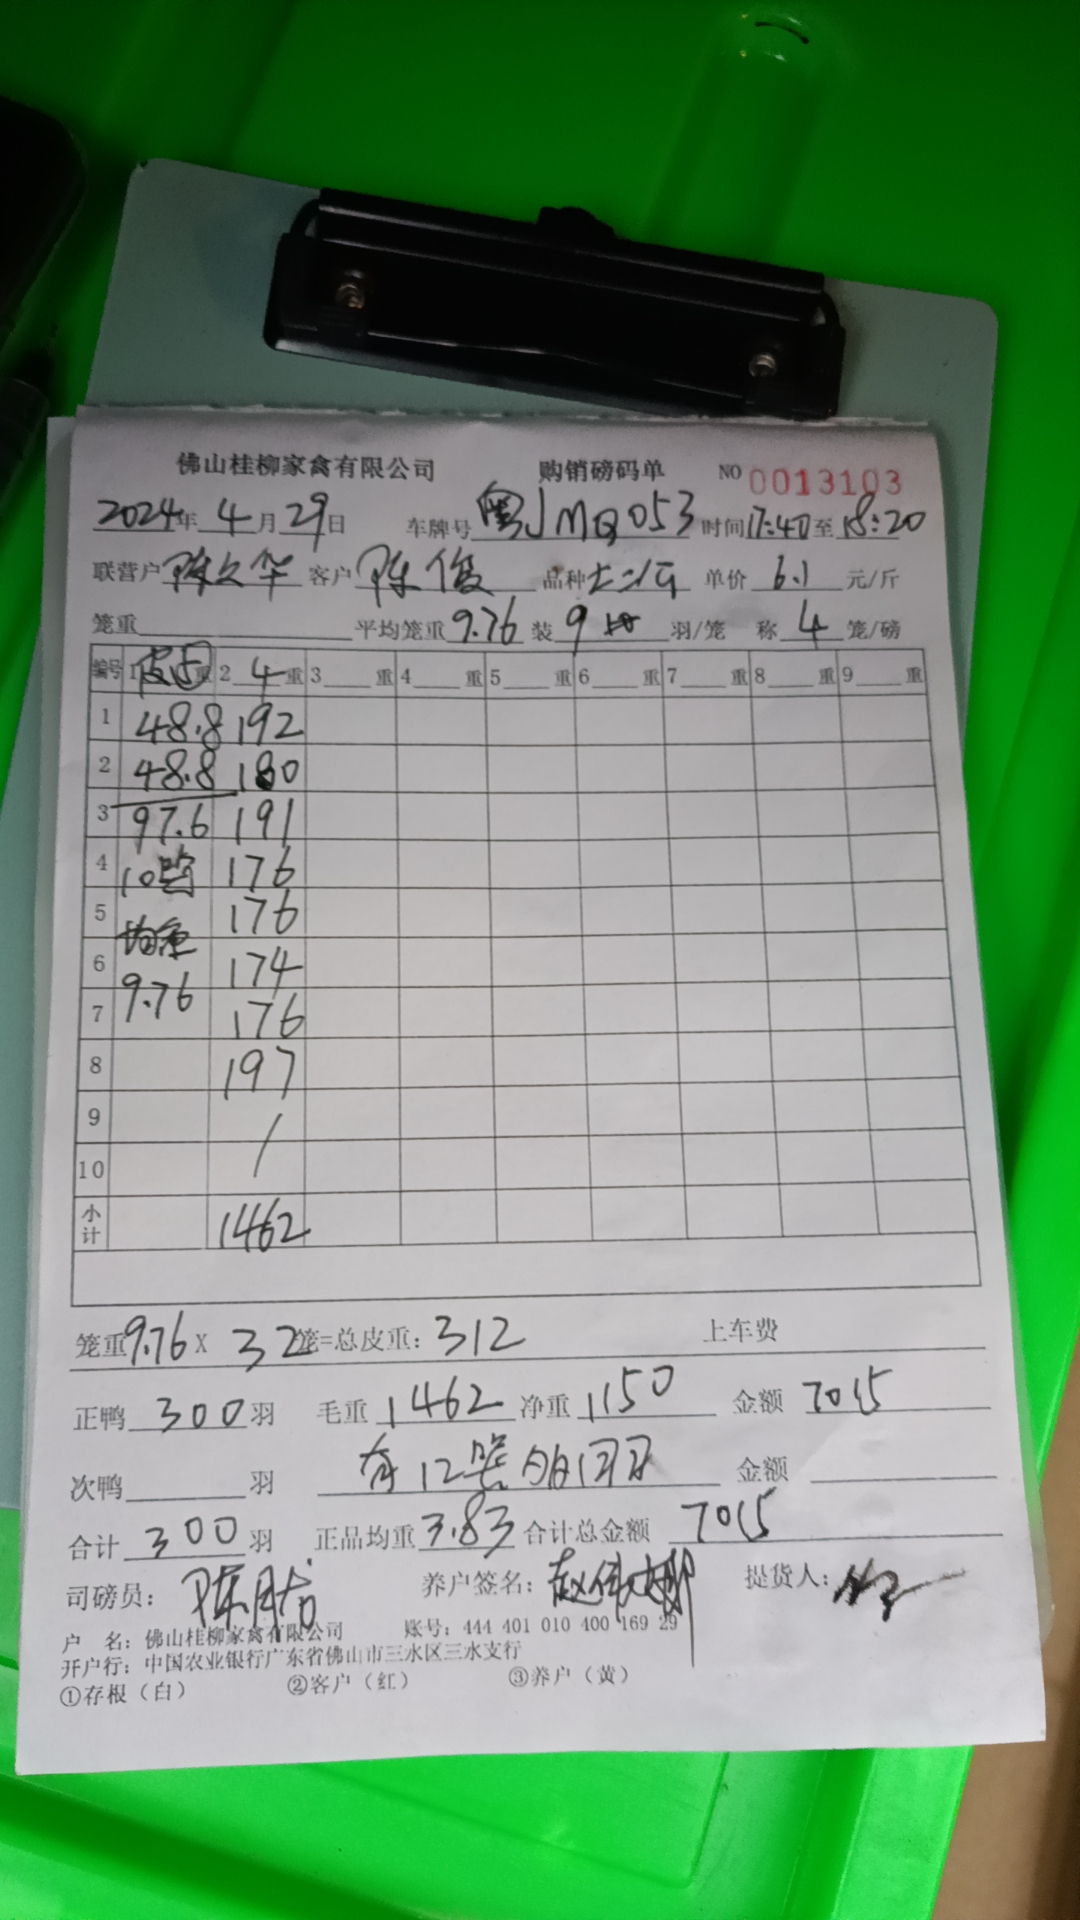 佛山桂柳家禽有限公司 购销磅码单 NO 0013103
2024年 4月29日 车牌号 粤JMQ053 时间17:40至18:20
联营户 陈久华 客户 陈俊 品种 单价 6.1 元/斤
笼重 平均笼重 9.76 装 9 羽/笼 称 4 笼/磅
编号 1 皮5 重 2 4 重 3 重 4 重 5 重 6 重 7 重 8 重 9 重
1 48.8 192
2 48.8 180
3 97.6 191
4 10笼 176
5 均重 176
6 9.76 174
7 176
8 197
9 /
10
小计 1462
笼重9.76 X 32笼=总皮重: 312 上车费
正鸭 300 羽 毛重 1462 净重 1150 金额 7015
次鸭 羽 有12笼 金额
合计 300 羽 正品均重 3.83 合计总金额 7015
司磅员: 养户签名: 提货人:
户 名: 佛山桂柳家禽有限公司 账号: 444 401 010 400 169 29
开户行: 中国农业银行广东省佛山市三水区三水支行
①存根（白） ②客户（红） ③养户（黄）